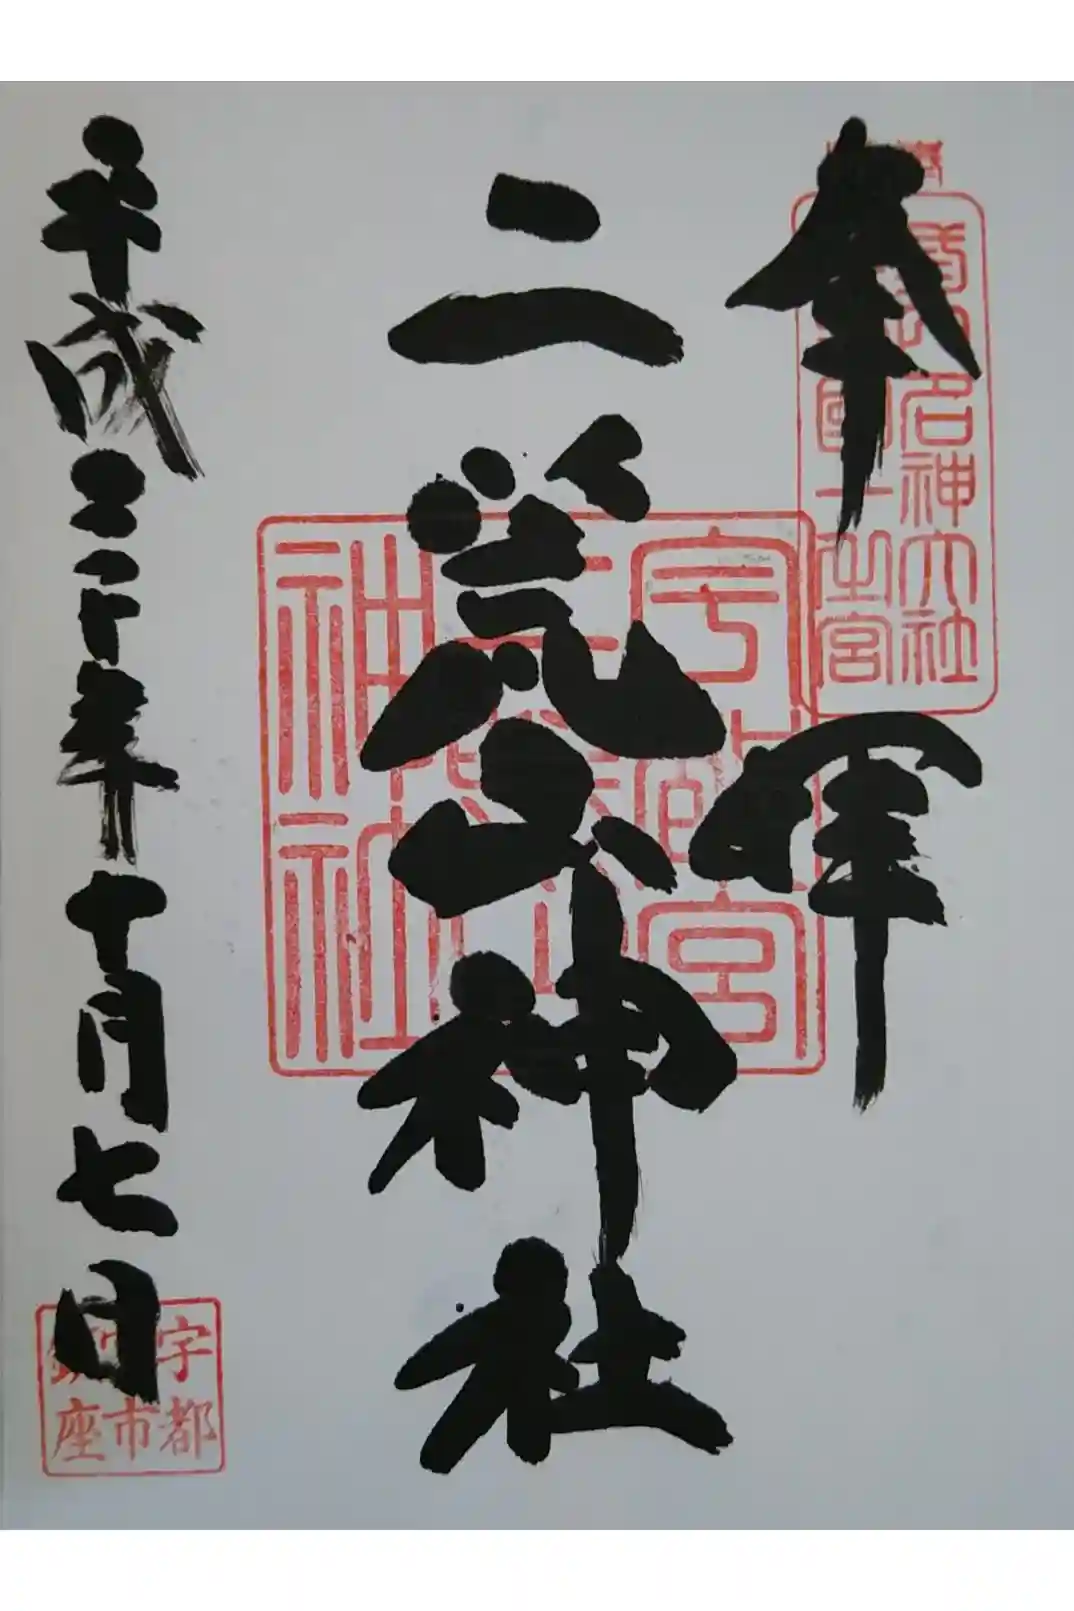 奉拝
名神大社
国一之宮
二荒山神社
宇都宮
二荒山
神社
平成二十年十月七日
宇都
宮市
鎮座